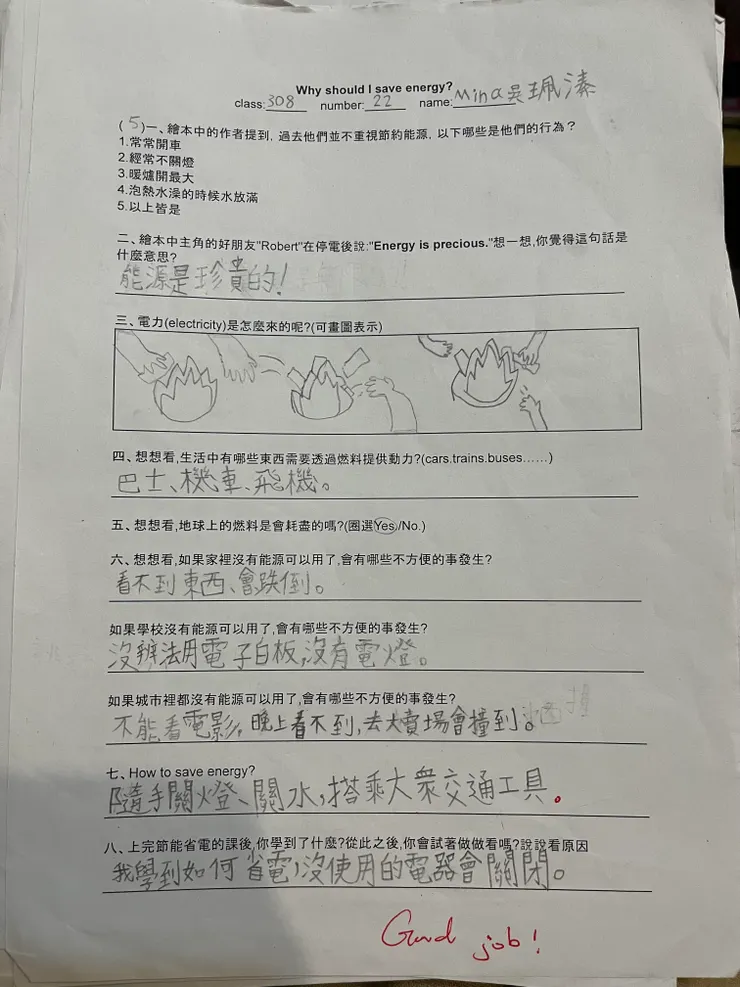 Why should I save energy?
class:308 number:22 name:Mina吳珮溱
(5)一、繪本中的作者提到，過去他們並不重視節約能源，以下哪些是他們的行為？
1.常常開車
2.經常不關燈
3.暖爐開最大
4.泡熱水澡的時候水放滿
5.以上皆是
二、繪本中主角的好朋友"Robert"在停電後說:"Energy is precious."想一想,你覺得這句話是
什麼意思?
能源是珍貴的!
三、電力(electricity)是怎麼來的呢?(可畫圖表示)
四、想想看,生活中有哪些東西需要透過燃料提供動力?(cars.trains.buses……)
巴士、機車、飛機。
五、想想看,地球上的燃料是會耗盡的嗎?(圈選Yes/No.)
六、想想看,如果家裡沒有能源可以用了,會有哪些不方便的事發生?
看不到東西、會跌倒。
如果學校沒有能源可以用了,會有哪些不方便的事發生?
沒辦法用電子白板,沒有電燈。
如果城市裡都沒有能源可以用了,會有哪些不方便的事發生?
不能看電影,晚上看不到,去大賣場會撞到。
七、How to save energy?
隨手關燈、關水,搭乘大眾交通工具。
八、上完節能省電的課後,你學到了什麼?從此之後,你會試著做做看嗎?說說看原因
我學到如何省電,沒使用的電器會關閉。
Good job!